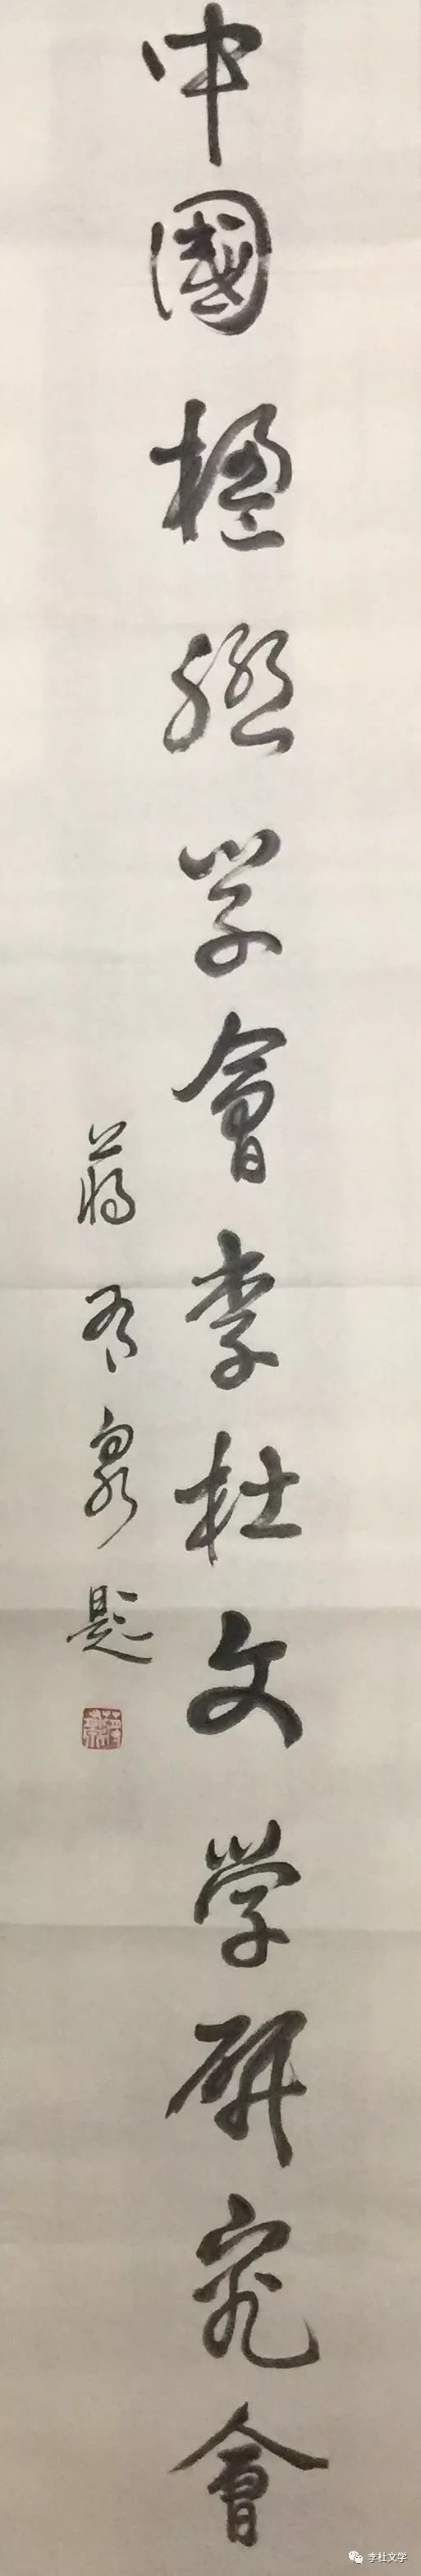 中國楹聯学會李杜文学研究會
蔣有泉題
李杜文学